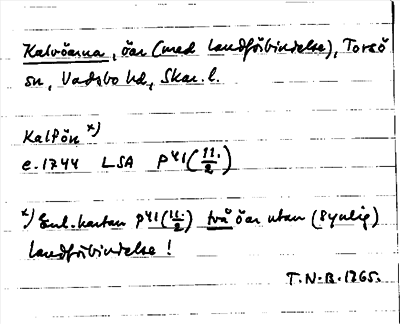 Kalvöarna, öar (med landförbindelse), Torsö
sn, Vadsbo hd, Skar. l.
Kalfön x)
c. 1744 LSA P41 (11./2)
x) Enl. kartan P41 (11./2) två öar utan (synlig)
landförbindelse!
T.N-B. 1965.